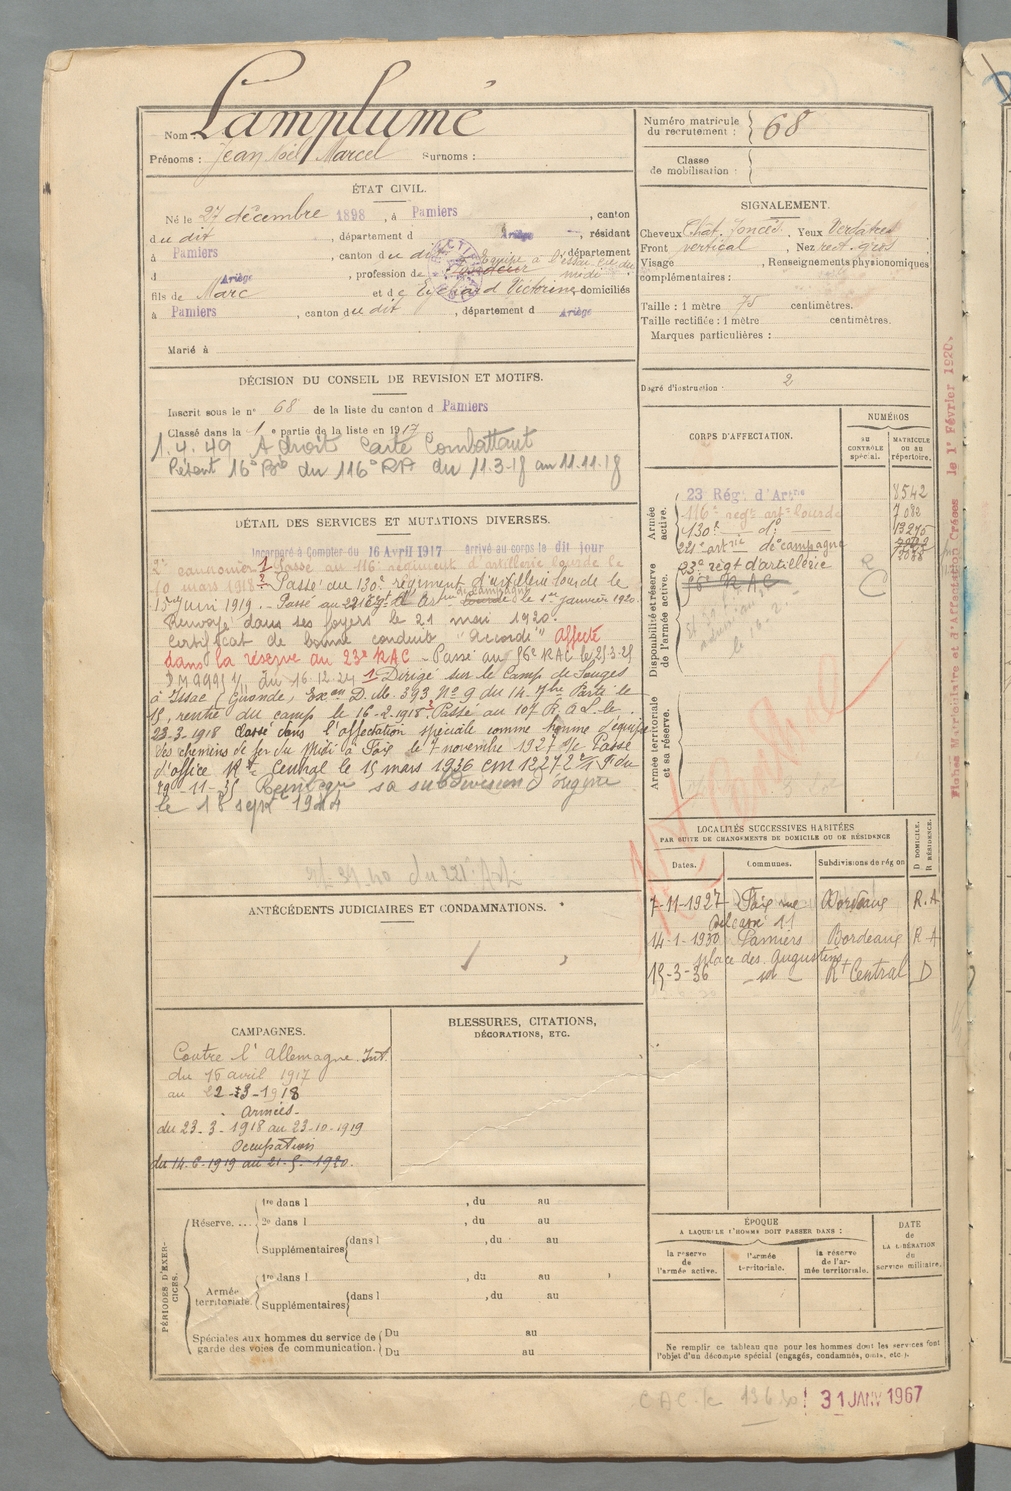 Nom : Lamplumé
Prénoms : Jean Noël Marcel Surnoms :
Numéro matricule du recrutement : 68
Classe de mobilisation :
ÉTAT CIVIL.
Né le 27 décembre 1898, à Pamiers, canton
du dit, département d Ariège, résidant
à Pamiers, canton du dit, département
d Ariège, profession de
fils de Marc et de Victorine domiciliés
à Pamiers, canton du dit, département d Ariège
Marié à
SIGNALEMENT.
Cheveux Chat. foncés, Yeux Verdâtres
Front vertical, Nez rect. gros
Visage , Renseignements physionomiques
complémentaires :
Taille : 1 mètre 75 centimètres.
Taille rectifiée : 1 mètre centimètres.
Marques particulières :
Degré d'instruction : 2
DÉCISION DU CONSEIL DE REVISION ET MOTIFS.
Inscrit sous le n° 68 de la liste du canton d Pamiers
Classé dans la 1 e partie de la liste en 1917
1.4.49 A droit Carte Combattant
16e Bie du 116e RA du 11.3.18 au 11.11.18
DÉTAIL DES SERVICES ET MUTATIONS DIVERSES.
Incorporé à Compter du 16 Avril 1917 arrivé au corps le dit jour
2e canonnier 1 Passé au 116e régiment d'artillerie lourde le
10 mars 1918. 2 Passé au 130e régiment d'artillerie lourde le
15 juin 1919. - Passé au 221e Régt d'Art. de campagne lourde le 1er janvier 1920.
Renvoyé dans ses foyers le 21 mai 1920.
Certificat de bonne conduite "Accordé" Affecté
dans la réserve au 23e RAC - Passé au 56e RAC le 25.3.25
du 16.12.24 1 Dirigé sur le Camp de Souges
à Issac, Gironde, D.M. 393 N° 9 du 14. 7bre Parti le
15, rentré du camp le 16-2-1918. 3 Passé au 107 R.A.L. le
23-3-1918 Classé dans l'affectation spéciale comme homme d'équipe
des chemins de fer du Midi à Foix le 7 novembre 1927 Passé
d'office Rt Central le 15 mars 1936 CM 12272 du
29-11-35 sa subdivision d'origine
le 18 sept 1944
CORPS D'AFFECTATION.
NUMÉROS
AU CONTRÔLE spécial.
MATRICULE OU AU répertoire.
Armée active.
23e Rég. d'Artie 8542
116e régt artie lourde 7082
130e do 13270
221e artie de campagne
Disponibilité et réserve de l'armée active.
23e régt d'artillerie
56e R.A.C
R
C
Armée territoriale et sa réserve.
Rt Central
LOCALITÉS SUCCESSIVES HABITÉES
PAR SUITE DE CHANGEMENTS DE DOMICILE OU DE RÉSIDENCE
D DOMICILE. R RÉSIDENCE.
Dates. Communes. Subdivisions de région
7-11-1927 Foix rue Delcassé 11 Bordeaux R.A
14-1-1930 Pamiers place des Augustins Bordeaux R A
15-3-36 - id - Rt Central D
ANTÉCÉDENTS JUDICIAIRES ET CONDAMNATIONS.
CAMPAGNES.
Contre l'Allemagne. Int.
du 16 avril 1917
au 22-3-1918
Armées-
du 23-3-1918 au 23-10-1919
Occupation
du 14-6-1919 au 21-5-1920.
BLESSURES, CITATIONS,
DÉCORATIONS, ETC.
PÉRIODES D'EXERCICES.
Réserve....
1re dans l , du au
2e dans l , du au
Supplémentaires dans l , du au
Armée territoriale.
1re dans l , du au
Supplémentaires dans l , du au
Spéciales aux hommes du service de garde des voies de communication.
Du au
Du au
ÉPOQUE
A LAQUELLE L'HOMME DOIT PASSER DANS :
la réserve de l'armée active.
l'armée territoriale.
la réserve de l'armée territoriale.
DATE de LA LIBÉRATION du service militaire.
Ne remplir ce tableau que pour les hommes dont les services font
l'objet d'un décompte spécial (engagés, condamnés, omis, etc.).
31 JANV 1967
Fiches Matriculaire et d'Affectation Créées le 1er Février 1920.